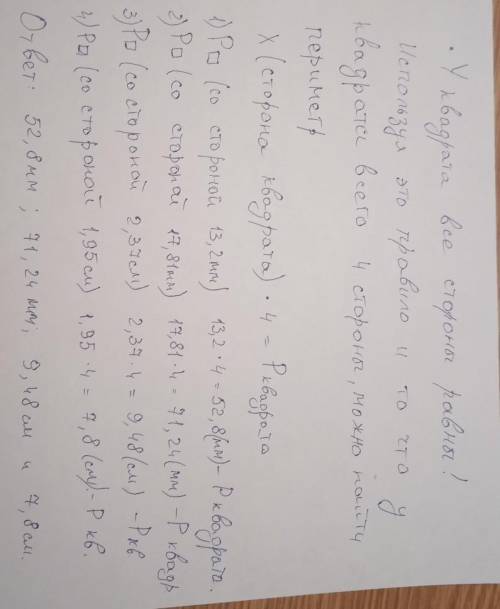 • У квадрата все стороны равны!
Используя это правило и то что у
квадрата всего 4 стороны, можно найти
периметр
X (сторона квадрата) · 4 = P квадрата
1) P□ (со стороной 13,2мм) 13,2 · 4 = 52,8(мм) - P квадрата.
2) P□ (со стороной 17,81мм) 17,81 · 4 = 71,24(мм) - P квадр
3) P□ (со стороной 2,37см) 2,37 · 4 = 9,48(см) - P кв
4) P□ (со стороной 1,95см) 1,95 · 4 = 7,8(см). - P кв.
Ответ: 52,8мм; 71,24мм; 9,48см и 7,8см.